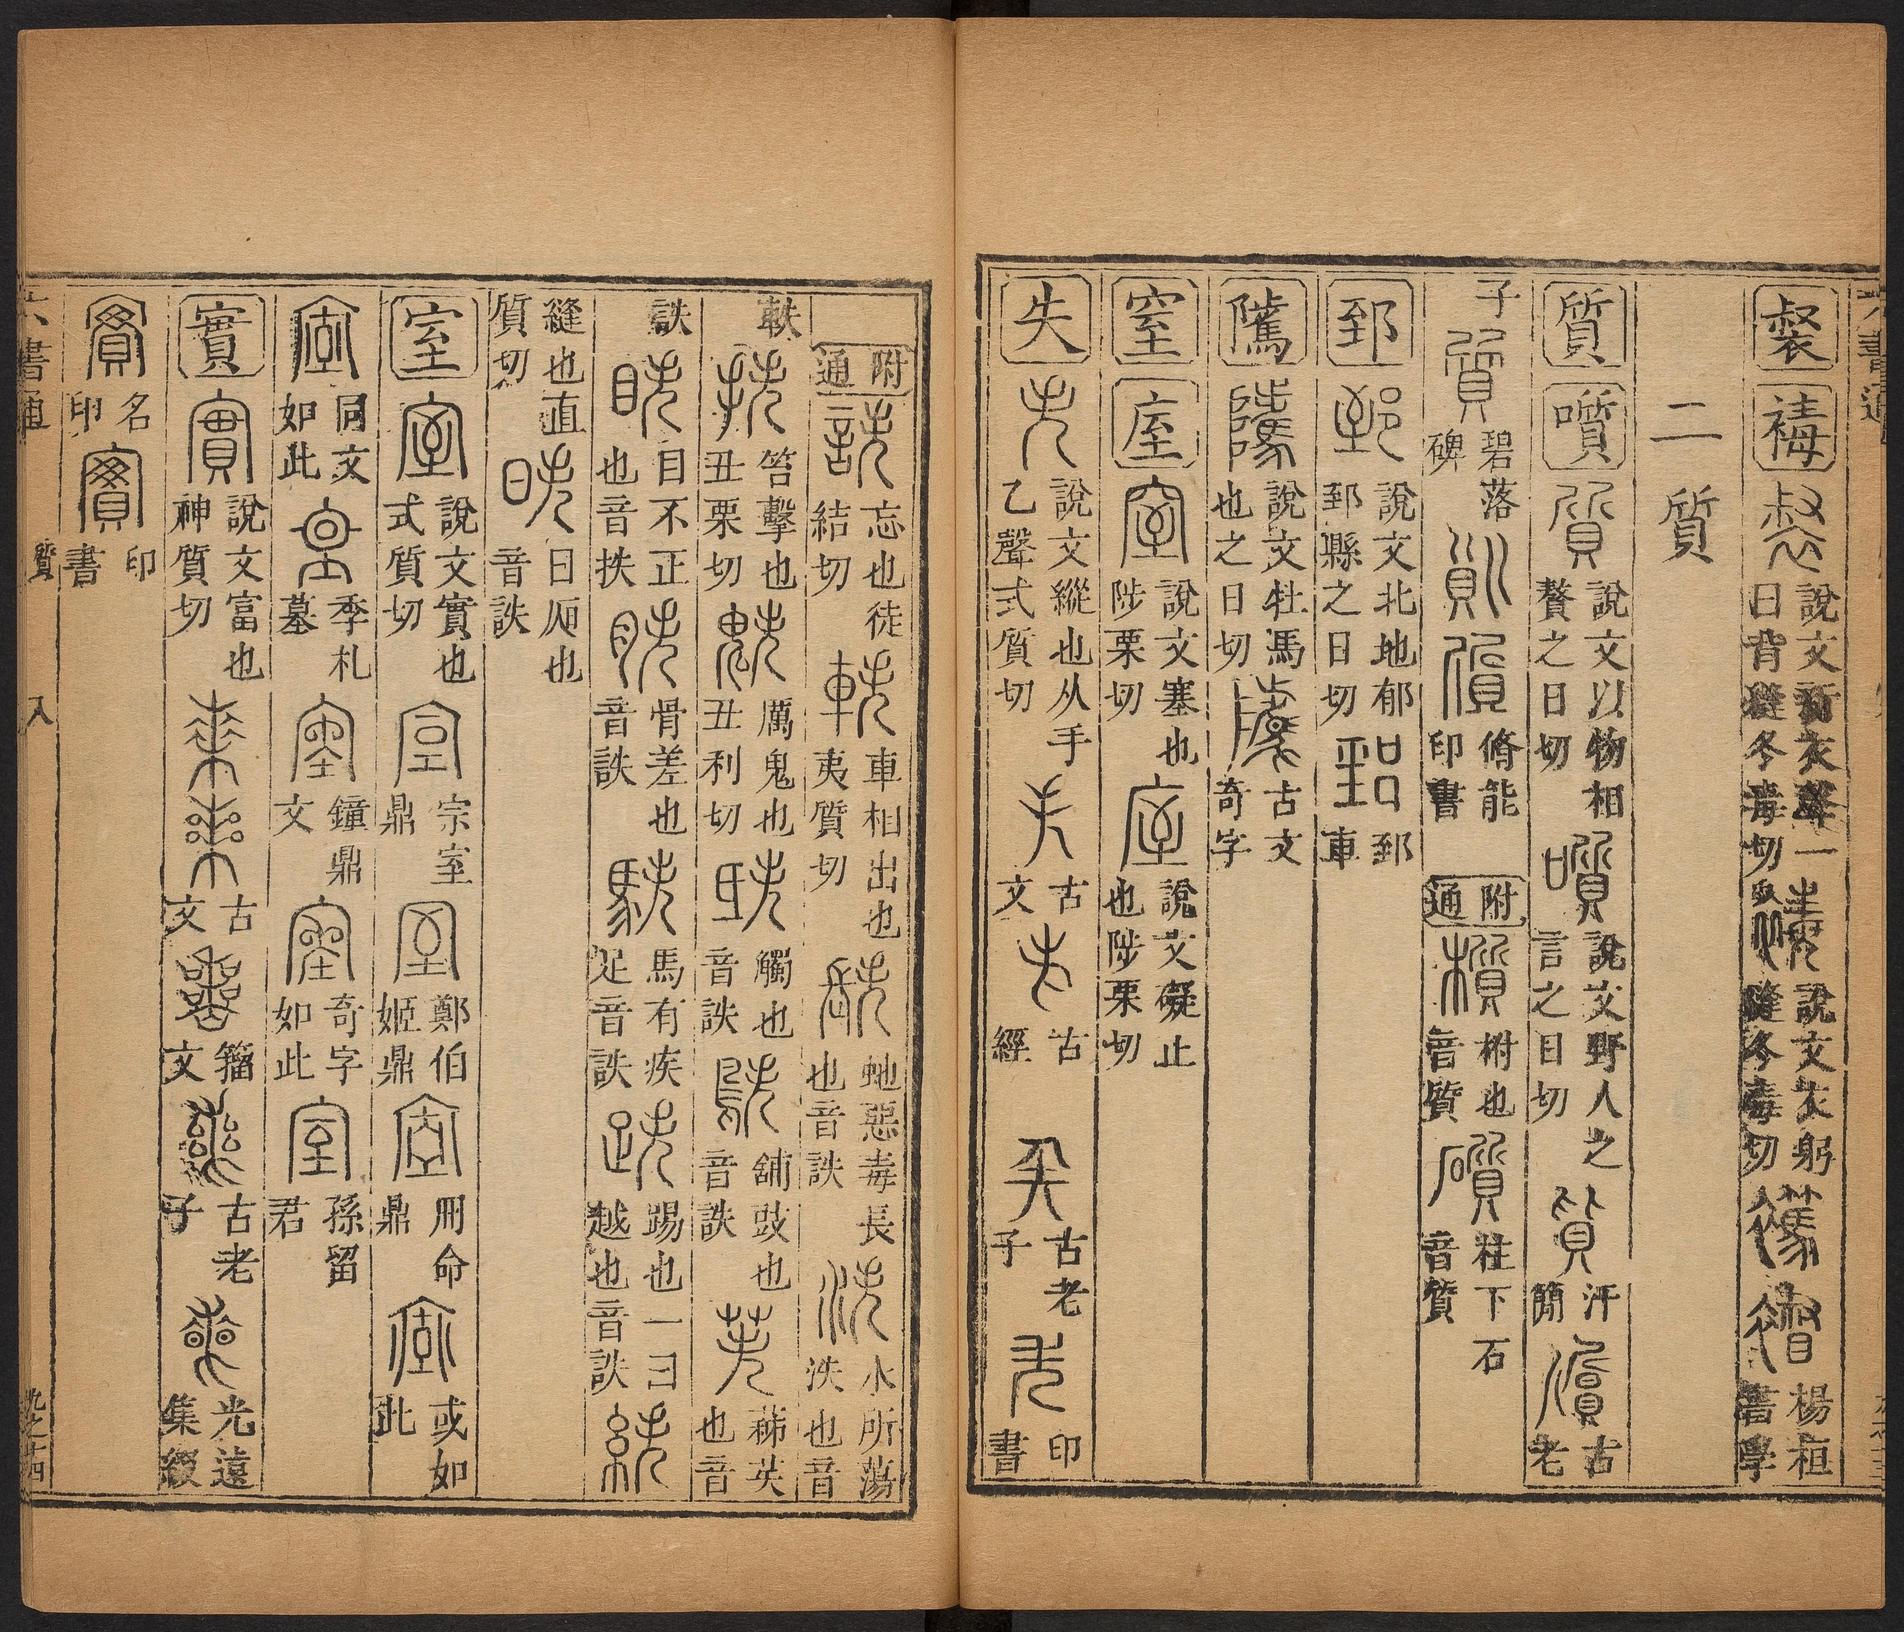 六書通
裻 𧝴 說文新衣聲一曰背縫冬毒切 說文衣躬縫冬毒切 楊桓書學
二 質
質 㗧 說文以物相贅之日切 說文野人之言之日切 汗簡 古老
子 碧落碑 脩能印書 附通 櫍 柎也音質 礩 柱下石音質
郅 說文北地郁郅縣之日切 郅車
騭 說文牡馬也之日切 古文奇字
窒 庢 說文塞也陟栗切 說文礙止也陟栗切
失 說文縱也从手乙聲式質切 古文 古經 古老子 印書
附通 詄 忘也徒結切 軼 車相出也夷質切 蛇惡毒長也音詄 泆 水所蕩泆也音
軼 抶 笞擊也丑栗切 魅 厲鬼也丑利切 觸也音詄 鴃 舖豉也音詄 苵 蕛苵也音
詄 眣 目不正也音抶 胅 骨差也音詄 駃 馬有疾足音詄 跌 踢也一曰越也音詄 紩
縫也直質切 昳 日厢也音詄
室 說文實也式質切 宗室鼎 鄭伯姬鼎 冊命鼎 或如此
同文如此 季札墓 鐘鼎文 奇字如此 孫留君
實 說文富也神質切 古文 籀文 古老子 光遠集綴
名印 印書
六書通 質 入 九之十四